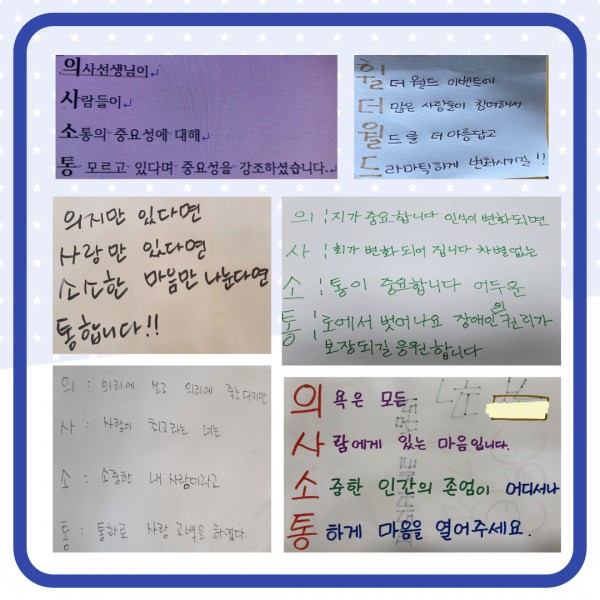 의사선생님이
사람들이
소통의 중요성에 대해
통 모르고 있다며 중요성을 강조하셨습니다.
휠 더 월드 이벤트에
더 많은 사람들이 참여해서
월드를 더 아름답고
드라마틱하게 변화시키길!!
의지만 있다면
사랑만 있다면
소소한 마음만 나눈다면
통합니다!!
의 : 지가 중요합니다 인식이 변화되면
사 : 회가 변화 되어 집니다 차별없는
소 : 통이 중요합니다 어두운
통 : 로에서 벗어나요 장애인의 권리가
보장되길 응원합니다
의 : 의리에 살고 의리에 죽는다지만
사 : 사랑이 최고라는 너는
소 : 소중한 내 사람이라고
통 : 통화로 사랑 고백을 하였다.
의 욕은 모든
사 람에게 있는 마음입니다.
소 중한 인간의 존엄이 어디서나
통 하게 마음을 열어주세요.